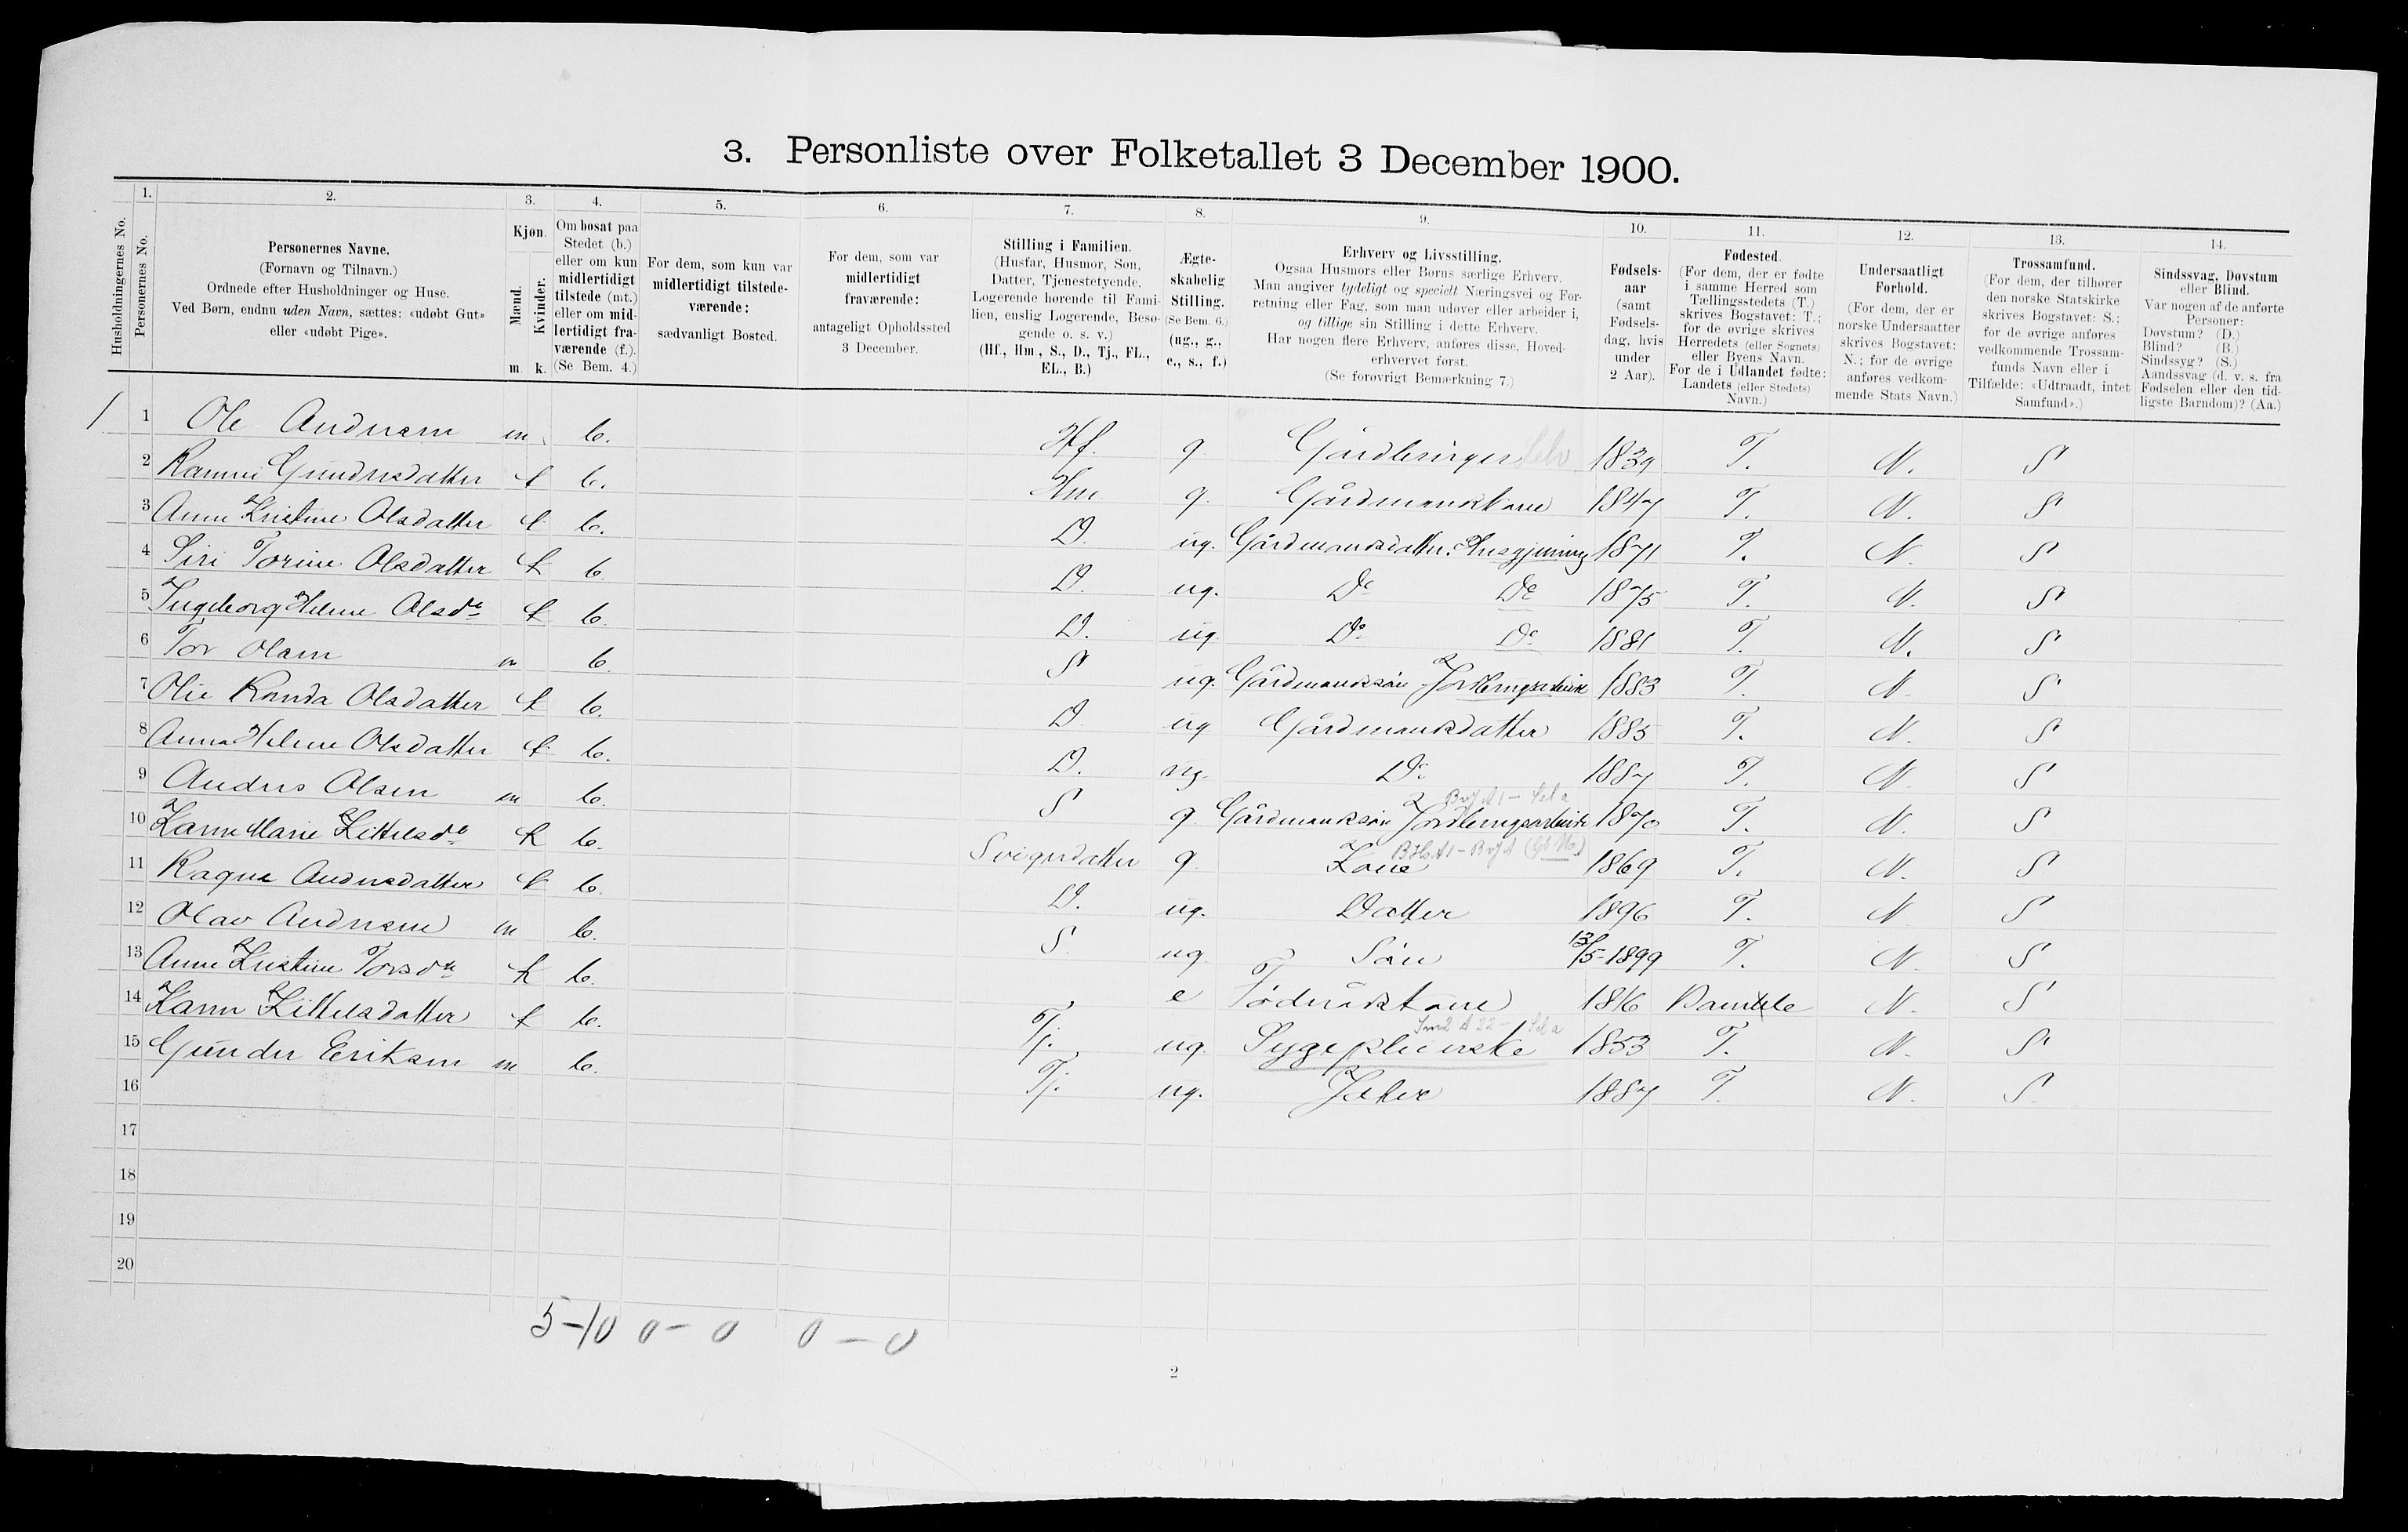 3. Personliste over Folketallet 3 December 1900.
1. 2. 3. 4. 5. 6. 7. 8. 9. 10. 11. 12. 13. 14.
Husholdningernes No.
Personernes No.
Personernes Navne.
(Fornavn og Tilnavn.)
Ordnede efter Husholdninger og Huse.
Ved Børn, endnu uden Navn, sættes: «udøbt Gut»
eller «udøbt Pige».
Kjøn.
Mænd.
Kvinder.
m. k.
Om bosat paa
Stedet (b.)
eller om kun
midlertidigt
tilstede (mt.)
eller om mid-
lertidigt fra-
værende (f.).
(Se Bem. 4.)
For dem, som kun var
midlertidigt tilstede-
værende:
sædvanligt Bosted.
For dem, som var
midlertidigt
fraværende:
antageligt Opholdssted
3 December.
Stilling i Familien.
(Husfar, Husmor, Søn,
Datter, Tjenestetyende,
Logerende hørende til Fami-
lien, enslig Logerende, Besø-
gende o. s. v.)
(Hf., Hm., S., D., Tj., FL.,
EL., B.)
Ægte-
skabelig
Stilling.
(Se Bem. 6.)
(ug., g.,
e., s., f.)
Erhverv og Livsstilling.
Ogsaa Husmors eller Børns særlige Erhverv.
Man angiver tydeligt og specielt Næringsvei og For-
retning eller Fag, som man udøver eller arbeider i,
og tillige sin Stilling i dette Erhverv.
Har nogen flere Erhverv, anføres disse, Hoved-
erhvervet først.
(Se forøvrigt Bemærkning 7.)
Fødsels-
aar
(samt
Fødsels-
dag, hvis
under
2 Aar).
Fødested.
(For dem, der er fødte
i samme Herred som
Tællingsstedets (T.)
skrives Bogstavet: T.;
for de øvrige skrives
Herredets (eller Sognets)
eller Byens Navn.
For de i Udlandet fødte:
Landets (eller Stedets)
Navn.)
Undersaatligt
Forhold.
(For dem, der er
norske Undersaatter
skrives Bogstavet:
N.; for de øvrige
anføres vedkom-
mende Stats Navn.)
Trossamfund.
(For dem, der tilhører
den norske Statskirke
skrives Bogstavet: S.;
for de øvrige anføres
vedkommende Trossam-
funds Navn eller i
Tilfælde: «Udtraadt, intet
Samfund».)
Sindssvag, Døvstum
eller Blind.
Var nogen af de anførte
Personer:
Døvstum? (D.)
Blind? (B.)
Sindssyg? (S.)
Aandssvag (d. v. s. fra
Fødselen eller den tid-
ligste Barndom)? (Aa.)
1 1 Ole Andersen m b. Hf. g Gårdbruger Selv 1839 T. N. S
2 Gundersdatter k b. Hm g. Gårdmandskone 1847 T. N. S
3 Anne Kristine Olsdatter k b. D. ug. Gårdmandsdatter. Husgjerning 1871 T. N. S
4 Siri Torine Olsdatter k b. D. ug. Do Do 1875 T. N. S
5 Ingeborg Helene Olsdr k b. D. ug. Do Do 1881 T. N. S
6 Tor Olsen m b. S ug. Gårdmandssøn Jordbrugsarbeide 1883 T. N. S
7 Olie Randa Olsdatter k b. D. ug Gårdmandsdatter 1885 T. N. S
8 Anna Helene Olsdatter k b. D. ug. Do 1887 T. N. S
9 Anders Olsen m b. S g Gårdmandssøn Jordbrugsarbeide 1870 T. N. S
10 Karen Marie Kittelsdr k b. Svigerdatter g. Kone 1869 T. N. S
11 Ragna Andersdatter k b. D. ug. Datter 1896 T. N. S
12 Olav Andersen m b. S. ug Søn 13/5-1899 T. N. S
13 Anne Kristine Torsdr k b. e Føderådskone 1816 Bamble N. S
14 Karen Kittelsdatter k b. Tj. ug. Sygepleierske 1853 T. N. S
15 Gunder Eriksen m b. Tj. ug. Jæter 1887 T. N. S.
16
17
18
19
20
5-10 0-0 0-0
2